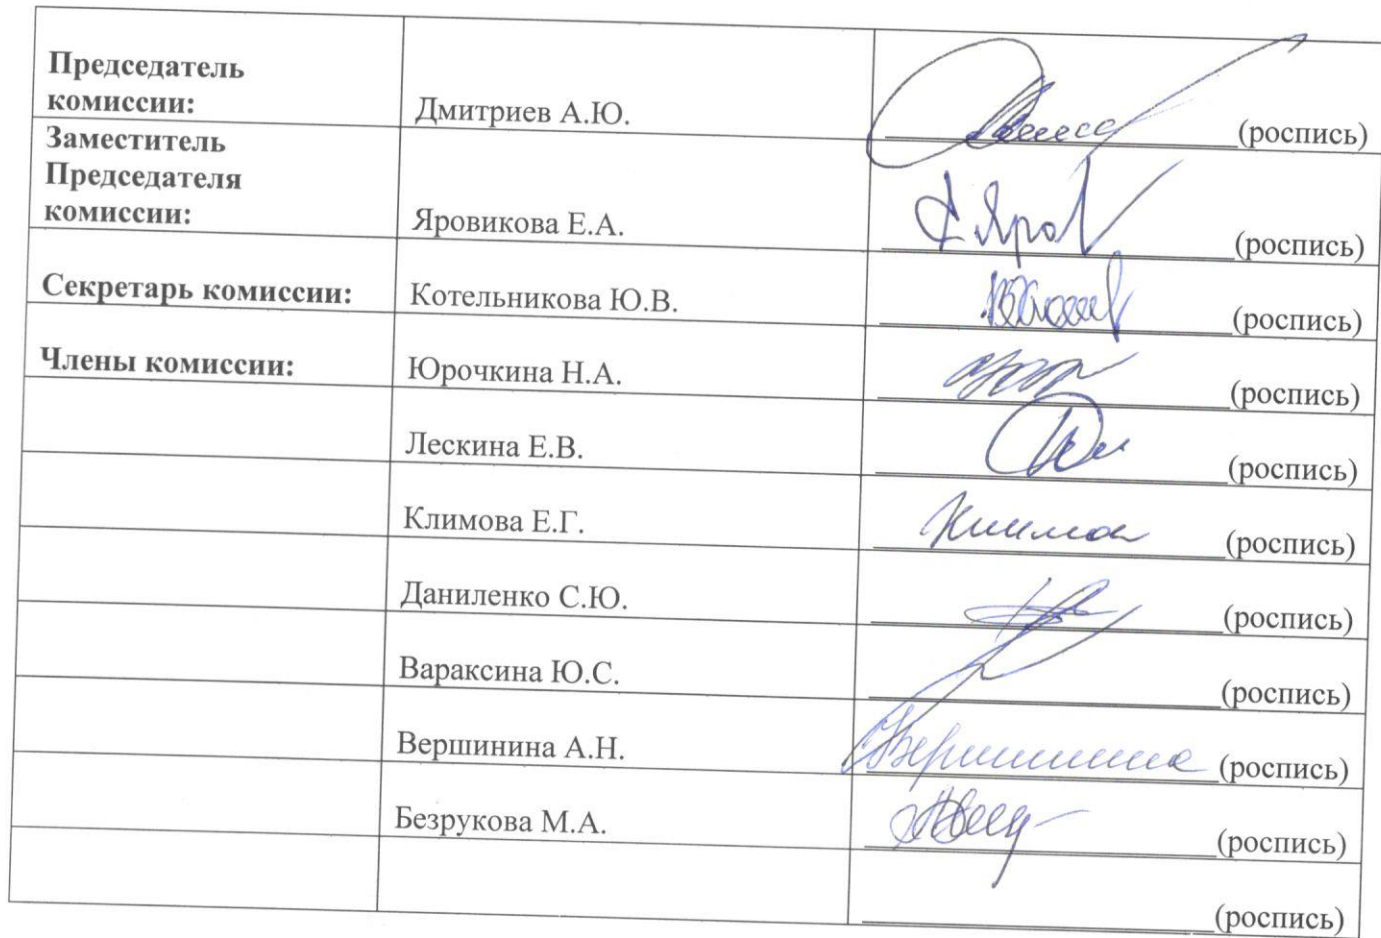 Председатель
комиссии: Дмитриев А.Ю. (роспись)
Заместитель
Председателя
комиссии: Яровикова Е.А. (роспись)
Секретарь комиссии: Котельникова Ю.В. (роспись)
Члены комиссии: Юрочкина Н.А. (роспись)
Лескина Е.В. (роспись)
Климова Е.Г. (роспись)
Даниленко С.Ю. (роспись)
Вараксина Ю.С. (роспись)
Вершинина А.Н. (роспись)
Безрукова М.А. (роспись)
(роспись)